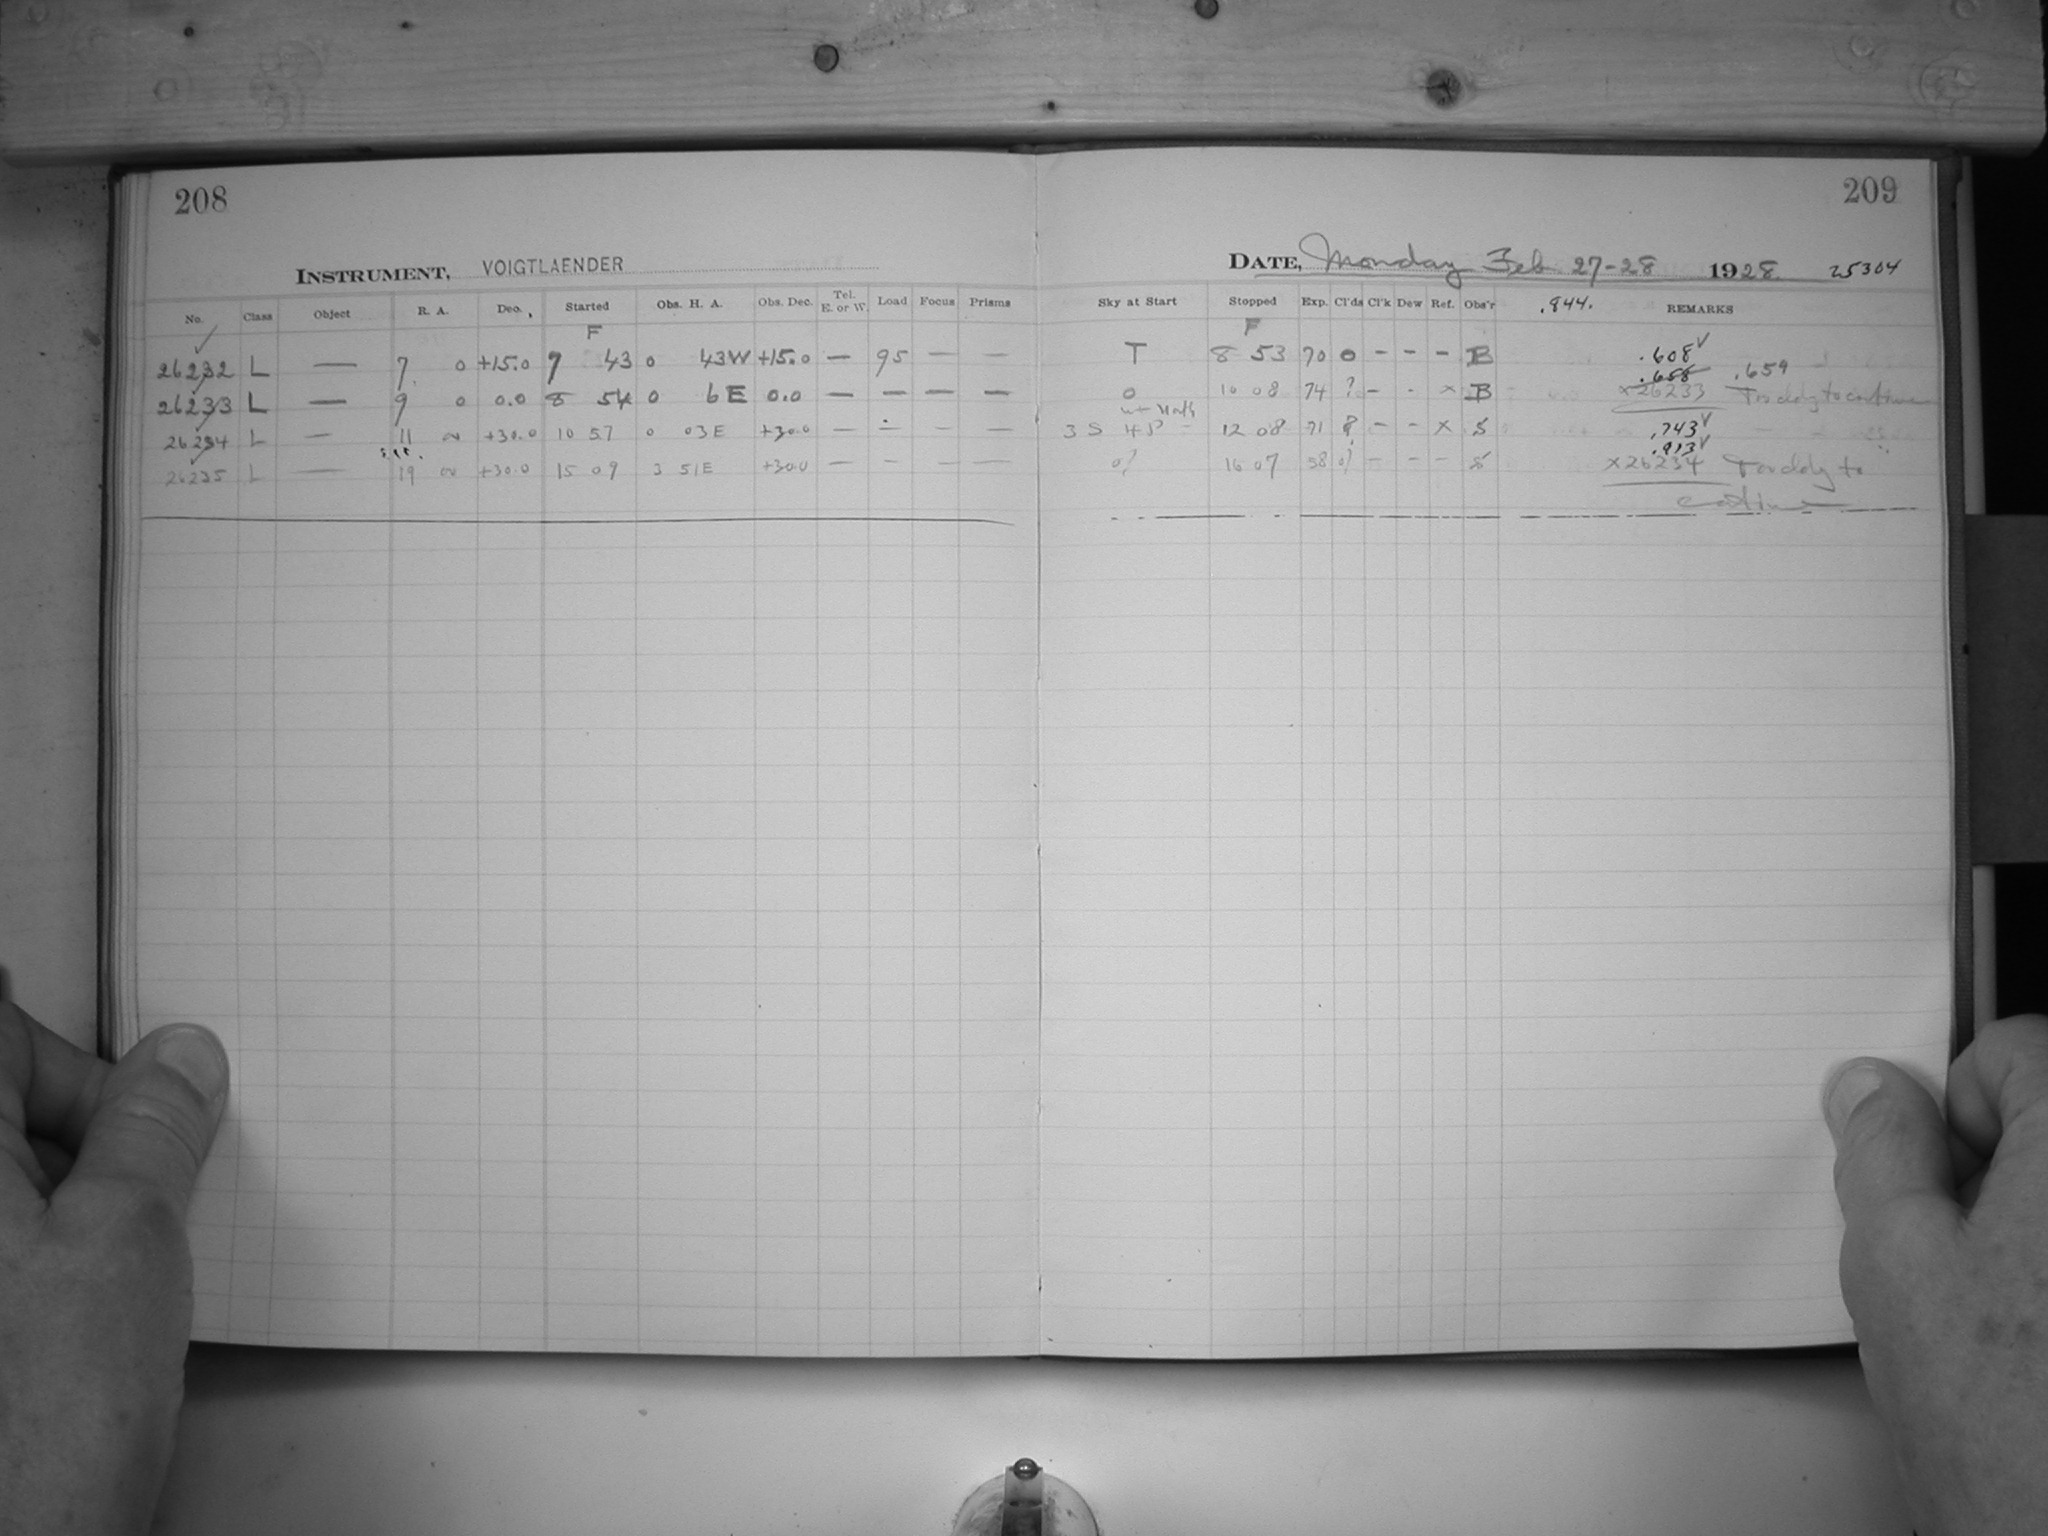 208
209
INSTRUMENT, VOIGTLAENDER
DATE, Monday Feb 27-28 1928. 25304
No. Class Object R. A. Dec. Started Obs. H. A. Obs. Dec. Tel. E. or W. Load Focus Prisms Sky at Start Stopped Exp. Cl'ds Cl'k Dew Ref. Obs'r .844. REMARKS
F F
26232 L — 7 0 +15.0 7 43 0 43W +15.0 — 95 — — T 8 53 70 0 - - - B .608
.658 .659
26233 L — 9 0 0.0 8 54 0 6E 0.0 — — — — 0 10 08 74 ? - - x B x26233 Too cldy to continue
26234 L — 11 +30.0 10 57 0 03E +30.0 — — — — 3 S 12 08 71 ? - - x S .743
.913
26235 L — 19 +30.0 15 09 3 51E +30.0 — — — — 0? 16 07 58 0? - - - S x26234 Too cldy to
continue